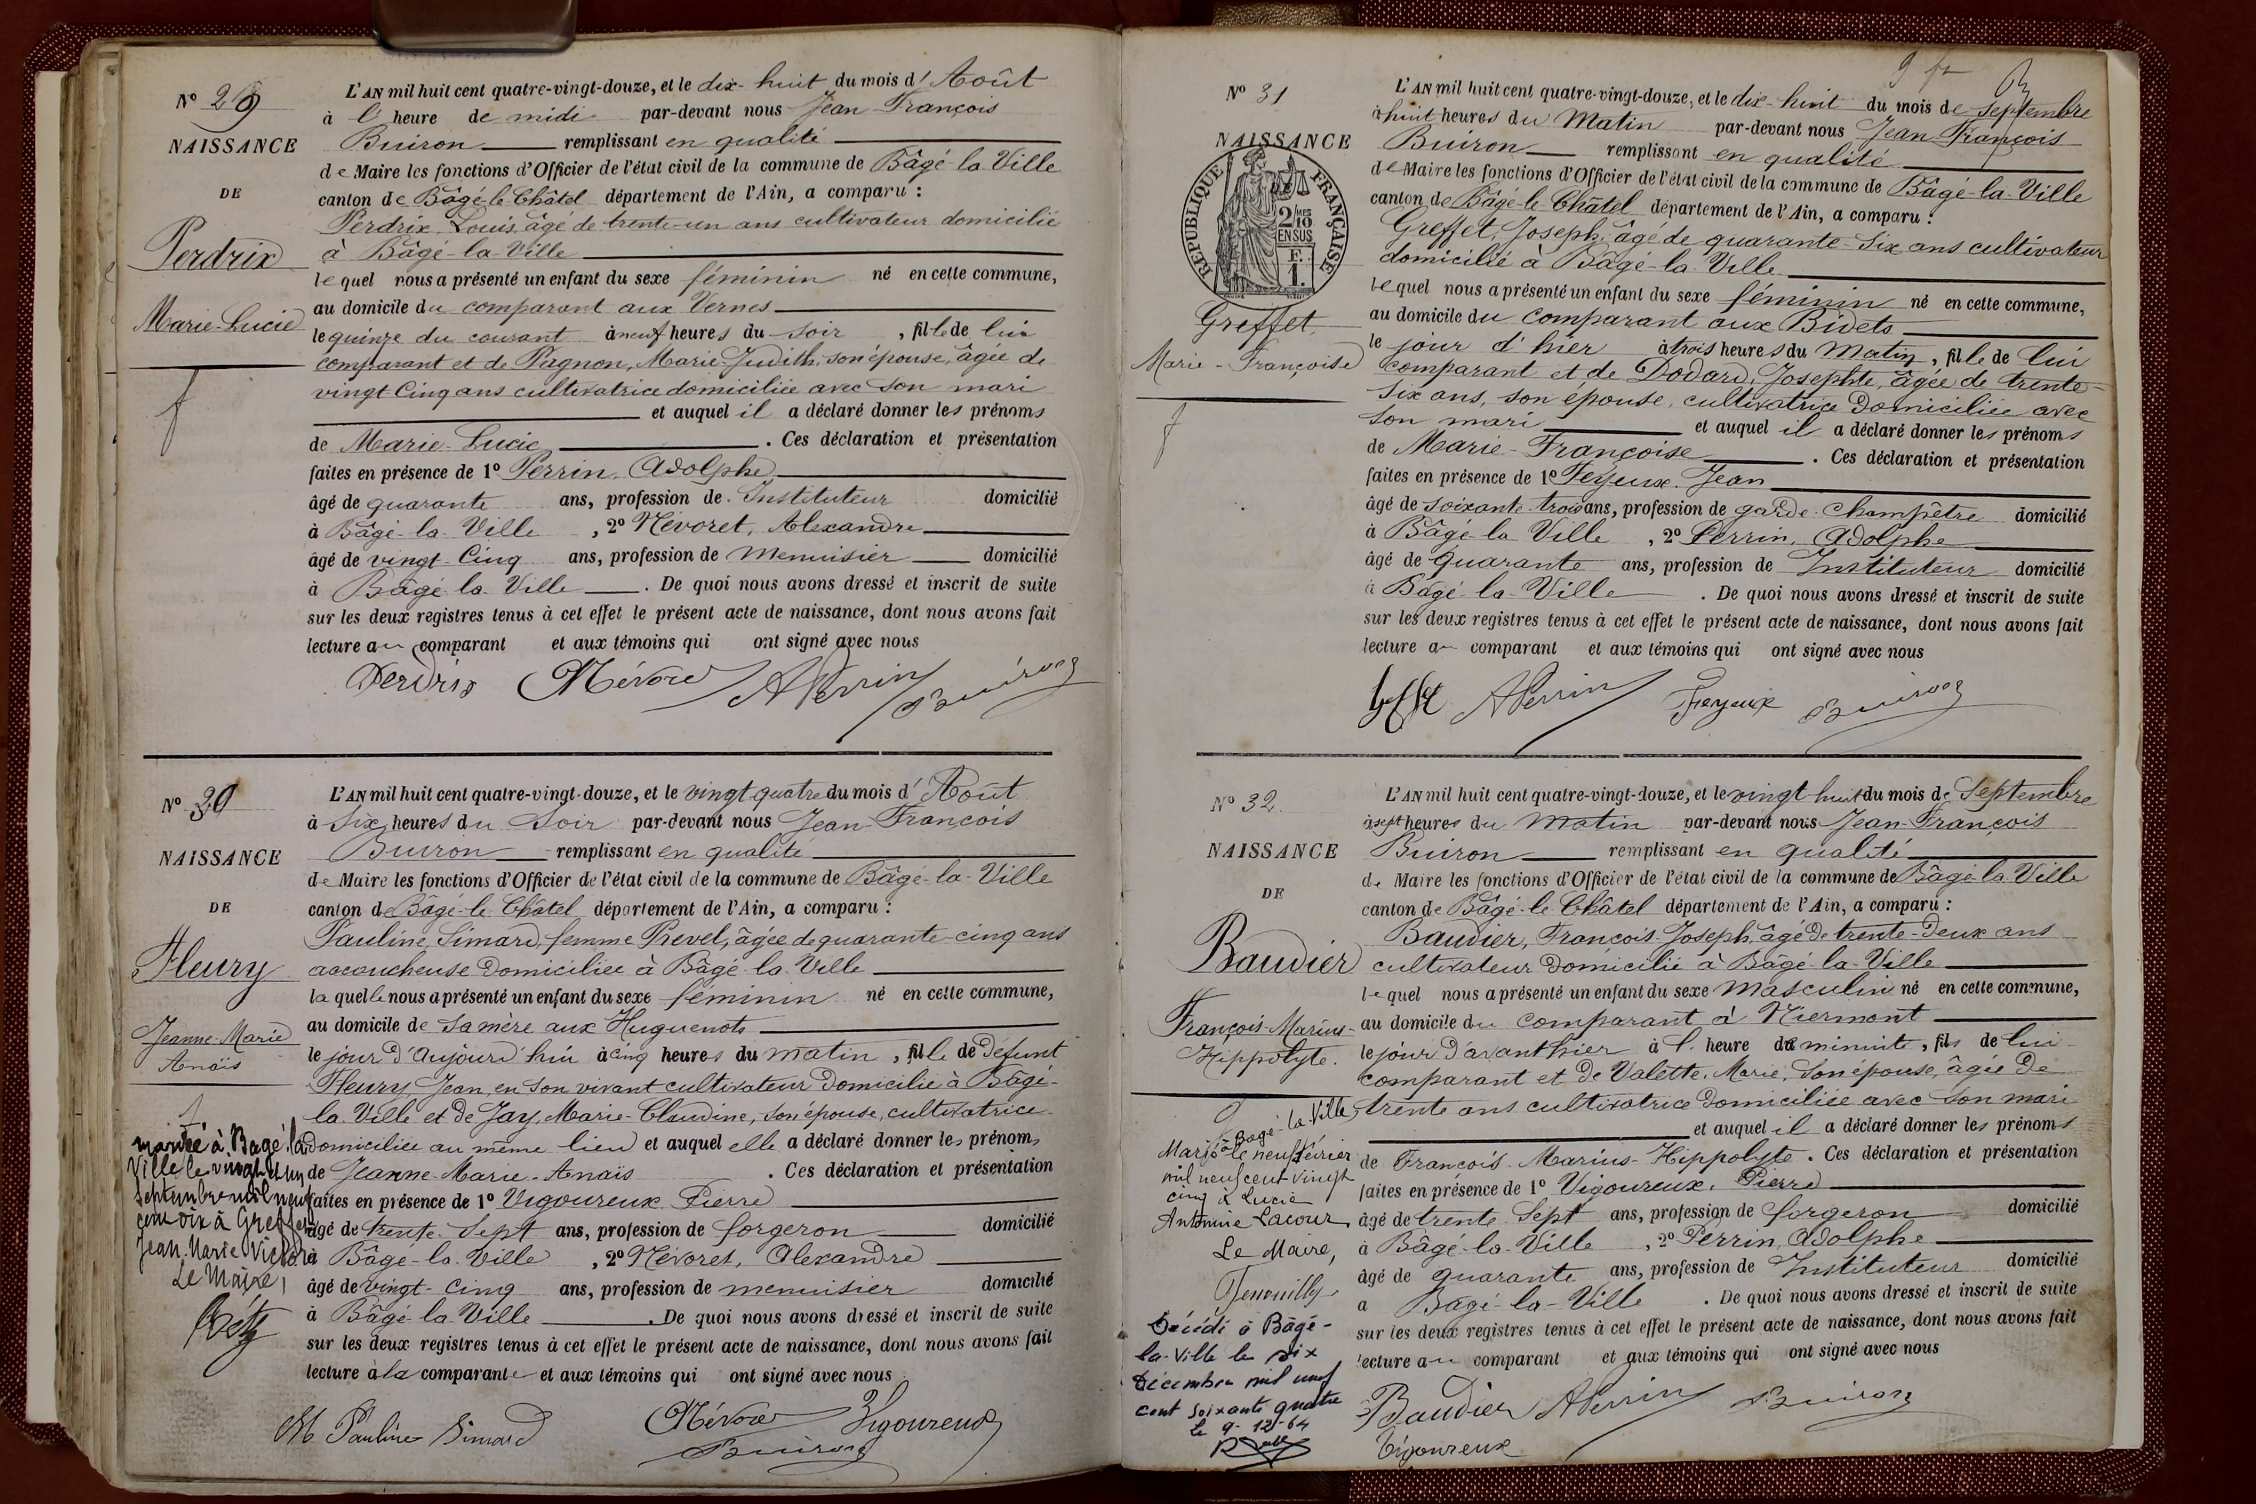 N° 29
NAISSANCE
DE
Perdrix
Marie-Lucie
L'AN mil huit cent quatre-vingt-douze, et le dix-huit du mois d'Août
à l' heure de midi par-devant nous Jean-François
Buiron remplissant en qualité
de Maire les fonctions d'Officier de l'état civil de la commune de Bâgé-la-Ville
canton de Bâgé-le-Châtel département de l'Ain, a comparu :
Perdrix, Louis, âgé de trente-un ans cultivateur domicilié
à Bâgé-la-Ville
lequel nous a présenté un enfant du sexe féminin né en cette commune,
au domicile du comparant aux Vernes
le quinze du courant à neuf heures du soir, fille de lui
comparant et de Pagnon, Marie-Judith, son épouse, âgée de
vingt cinq ans cultivatrice domiciliée avec son mari
et auquel il a déclaré donner les prénoms
de Marie-Lucie. Ces déclaration et présentation
faites en présence de 1° Perrin, Adolphe
âgé de quarante ans, profession de Instituteur domicilié
à Bâgé-la-Ville, 2° Névoret, Alexandre
âgé de vingt-cinq ans, profession de menuisier domicilié
à Bâgé-la-Ville. De quoi nous avons dressé et inscrit de suite
sur les deux registres tenus à cet effet le présent acte de naissance, dont nous avons fait
lecture au comparant et aux témoins qui ont signé avec nous
Perdrix Névoret APerrin Buiron
N° 30
NAISSANCE
DE
Fleury
Jeanne-Marie
Anaïs
mariée à Bâgé-la
Ville le vingt et un
septembre mil neuf
cent dix à Greffet
Jean-Marie Victor
Le Maire,
L'AN mil huit cent quatre-vingt-douze, et le vingt-quatre du mois d'Août
à six heures du soir par-devant nous Jean-François
Buiron remplissant en qualité
de Maire les fonctions d'Officier de l'état civil de la commune de Bâgé-la-Ville
canton de Bâgé-le-Châtel département de l'Ain, a comparu :
Pauline Simard, femme Prevel, âgée de quarante-cinq ans
accoucheuse domiciliée à Bâgé-la-Ville
laquelle nous a présenté un enfant du sexe féminin né en cette commune,
au domicile de sa mère aux Huguenots
le jour d'aujourd'hui à cinq heures du matin, fille de défunt
Fleury, Jean, en son vivant cultivateur domicilié à Bâgé-
la-Ville et de Jay, Marie-Claudine, son épouse, cultivatrice
domiciliée au même lieu et auquel elle a déclaré donner les prénoms
de Jeanne-Marie-Anaïs. Ces déclaration et présentation
faites en présence de 1° Vigoureux Pierre
âgé de trente-sept ans, profession de forgeron domicilié
à Bâgé-la-Ville, 2° Névoret, Alexandre
âgé de vingt-cinq ans, profession de menuisier domicilié
à Bâgé-la-Ville. De quoi nous avons dressé et inscrit de suite
sur les deux registres tenus à cet effet le présent acte de naissance, dont nous avons fait
lecture à la comparante et aux témoins qui ont signé avec nous
M Pauline Simard Névoret Vigoureux
Buiron
N° 31
NAISSANCE
RÉPUBLIQUE FRANÇAISE
2/10 EN SUS
F. 1.
Greffet
Marie-Françoise
L'AN mil huit cent quatre-vingt-douze, et le dix-huit du mois de septembre
à huit heures du Matin par-devant nous Jean-François
Buiron remplissant en qualité
de Maire les fonctions d'Officier de l'état civil de la commune de Bâgé-la-Ville
canton de Bâgé-le-Châtel département de l'Ain, a comparu :
Greffet, Joseph, âgé de quarante-six ans cultivateur
domicilié à Bâgé-la-Ville
lequel nous a présenté un enfant du sexe féminin né en cette commune,
au domicile du comparant aux Bidets
le jour d'hier à trois heures du Matin, fille de lui
comparant et de Dodard, Josephte, âgée de trente-
six ans, son épouse, cultivatrice domiciliée avec
son mari et auquel il a déclaré donner les prénoms
de Marie-Françoise. Ces déclaration et présentation
faites en présence de 1° Feyeux Jean
âgé de soixante-trois ans, profession de garde-champêtre domicilié
à Bâgé-la-Ville, 2° Perrin, Adolphe
âgé de quarante ans, profession de Instituteur domicilié
à Bâgé-la-Ville. De quoi nous avons dressé et inscrit de suite
sur les deux registres tenus à cet effet le présent acte de naissance, dont nous avons fait
lecture au comparant et aux témoins qui ont signé avec nous
Greffet APerrin Feyeux Buiron
N° 32
NAISSANCE
DE
Baudier
François-Marius-
Hippolyte.
Marié à Bâgé-la-Ville
le neuf février
mil neuf cent vingt
cinq à Lucie
Antonine Lacour
Le Maire,
Décédé à Bâgé-
la-Ville le dix
Décembre mil neuf
cent soixante quatre
Le 9-12-64
L'AN mil huit cent quatre-vingt-douze, et le vingt-huit du mois de Septembre
à sept heures du Matin par-devant nous Jean-François
Buiron remplissant en qualité
de Maire les fonctions d'Officier de l'état civil de la commune de Bâgé-la-Ville
canton de Bâgé-le-Châtel département de l'Ain, a comparu :
Baudier, François-Joseph, âgé de trente-deux ans
cultivateur domicilié à Bâgé-la-Ville
lequel nous a présenté un enfant du sexe masculin né en cette commune,
au domicile du comparant à Niermont
le jour d'avant hier à l' heure de minuit, fils de lui
comparant et de Valette, Marie, son épouse, âgée de
trente ans cultivatrice domiciliée avec son mari
et auquel il a déclaré donner les prénoms
de François-Marius-Hippolyte. Ces déclaration et présentation
faites en présence de 1° Vigoureux, Pierre
âgé de trente-sept ans, profession de forgeron domicilié
à Bâgé-la-Ville, 2° Perrin, Adolphe
âgé de quarante ans, profession de Instituteur domicilié
à Bâgé-la-Ville. De quoi nous avons dressé et inscrit de suite
sur les deux registres tenus à cet effet le présent acte de naissance, dont nous avons fait
lecture au comparant et aux témoins qui ont signé avec nous
Baudier APerrin Buiron
Vigoureux